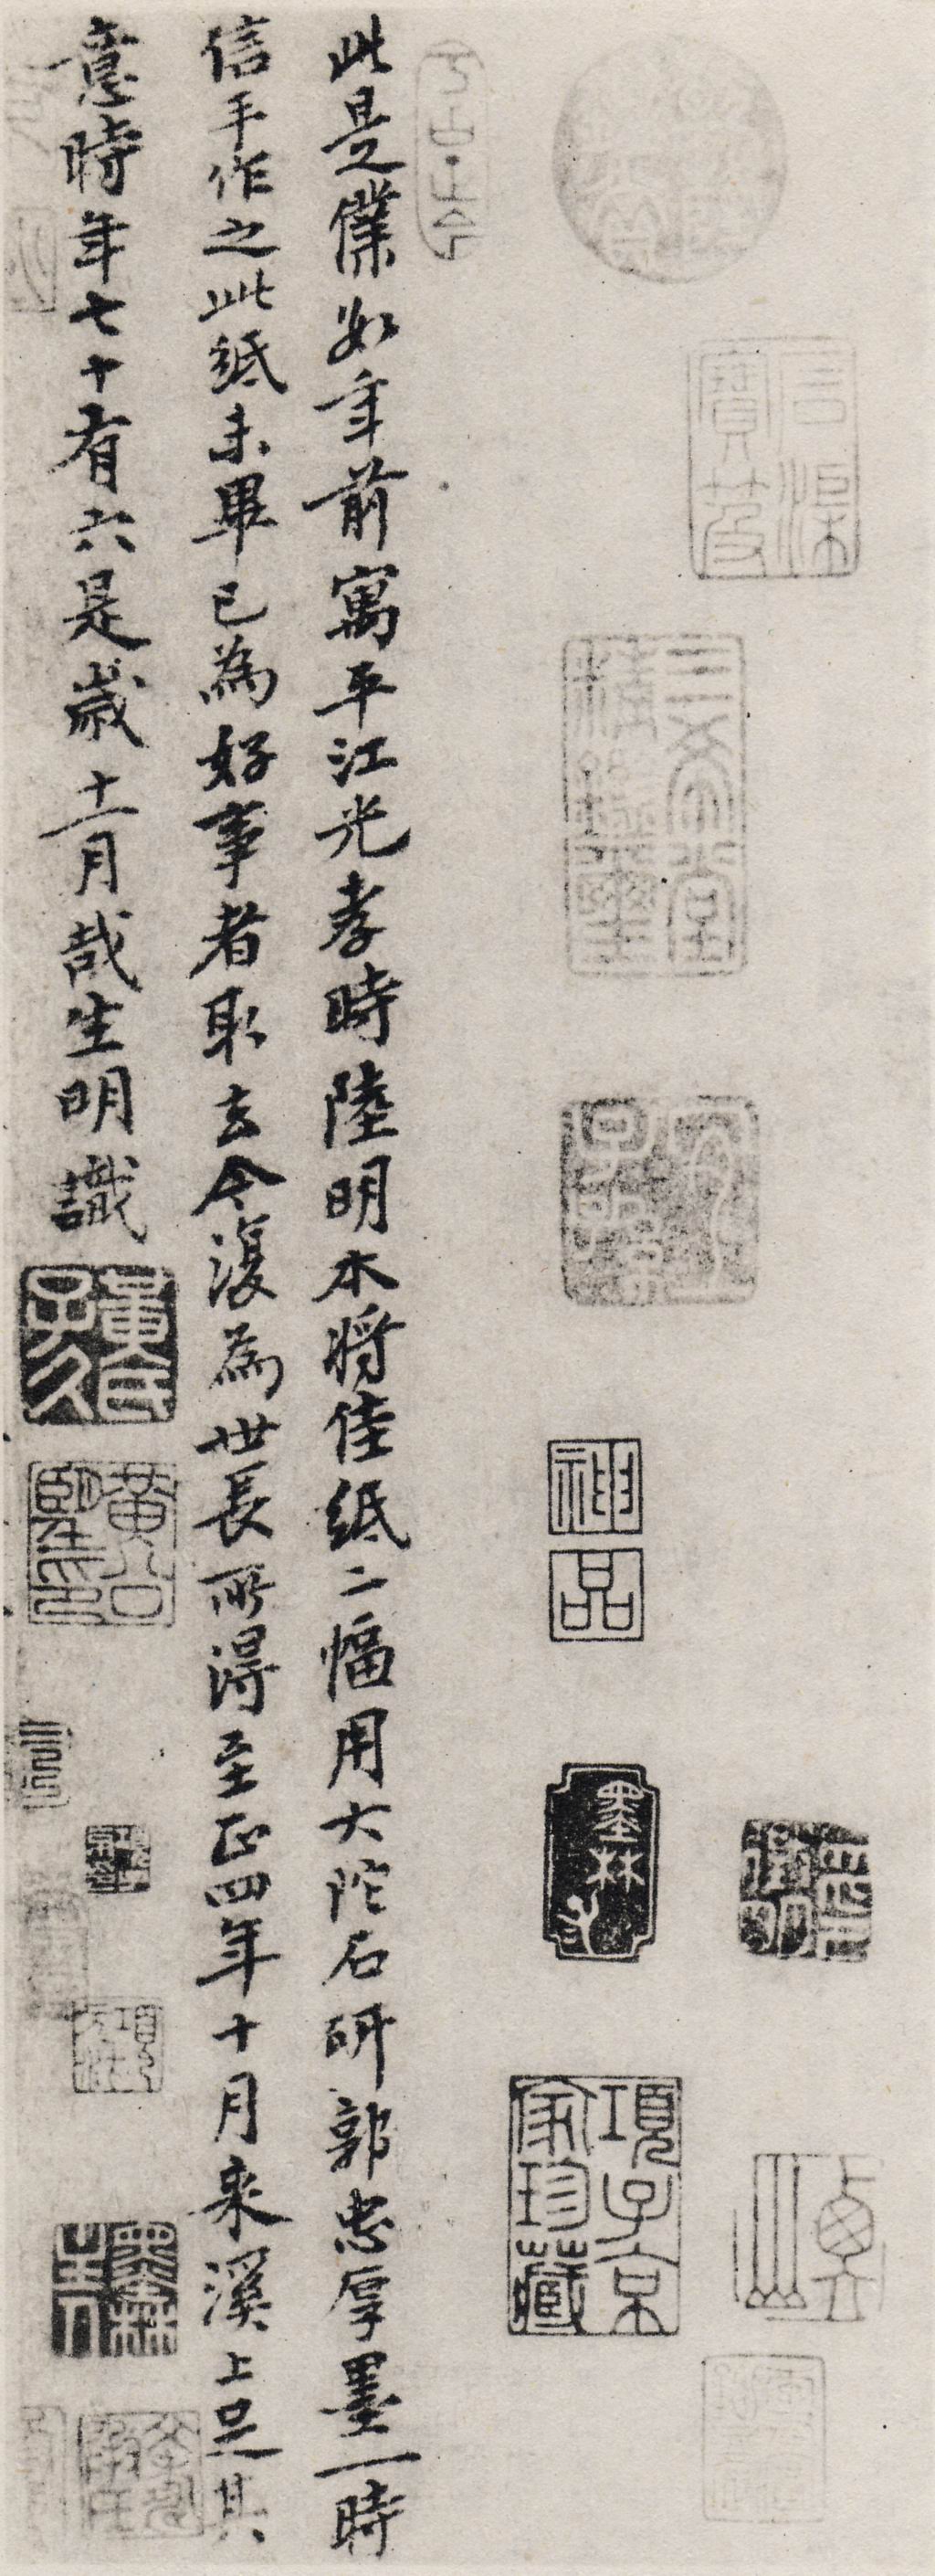 石渠寶笈
三希堂精鑑璽
神品
項子京家珍藏
此是僕數年前寓平江光孝時陸明本將佳紙二幅用大陀石研郭忠厚墨一時
信手作之此紙未畢已為好事者取去今復為世長所得至正四年十月來溪上足其
意時年七十有六是歲十一月哉生明識
黃氏子久
黃公望印
墨林山人